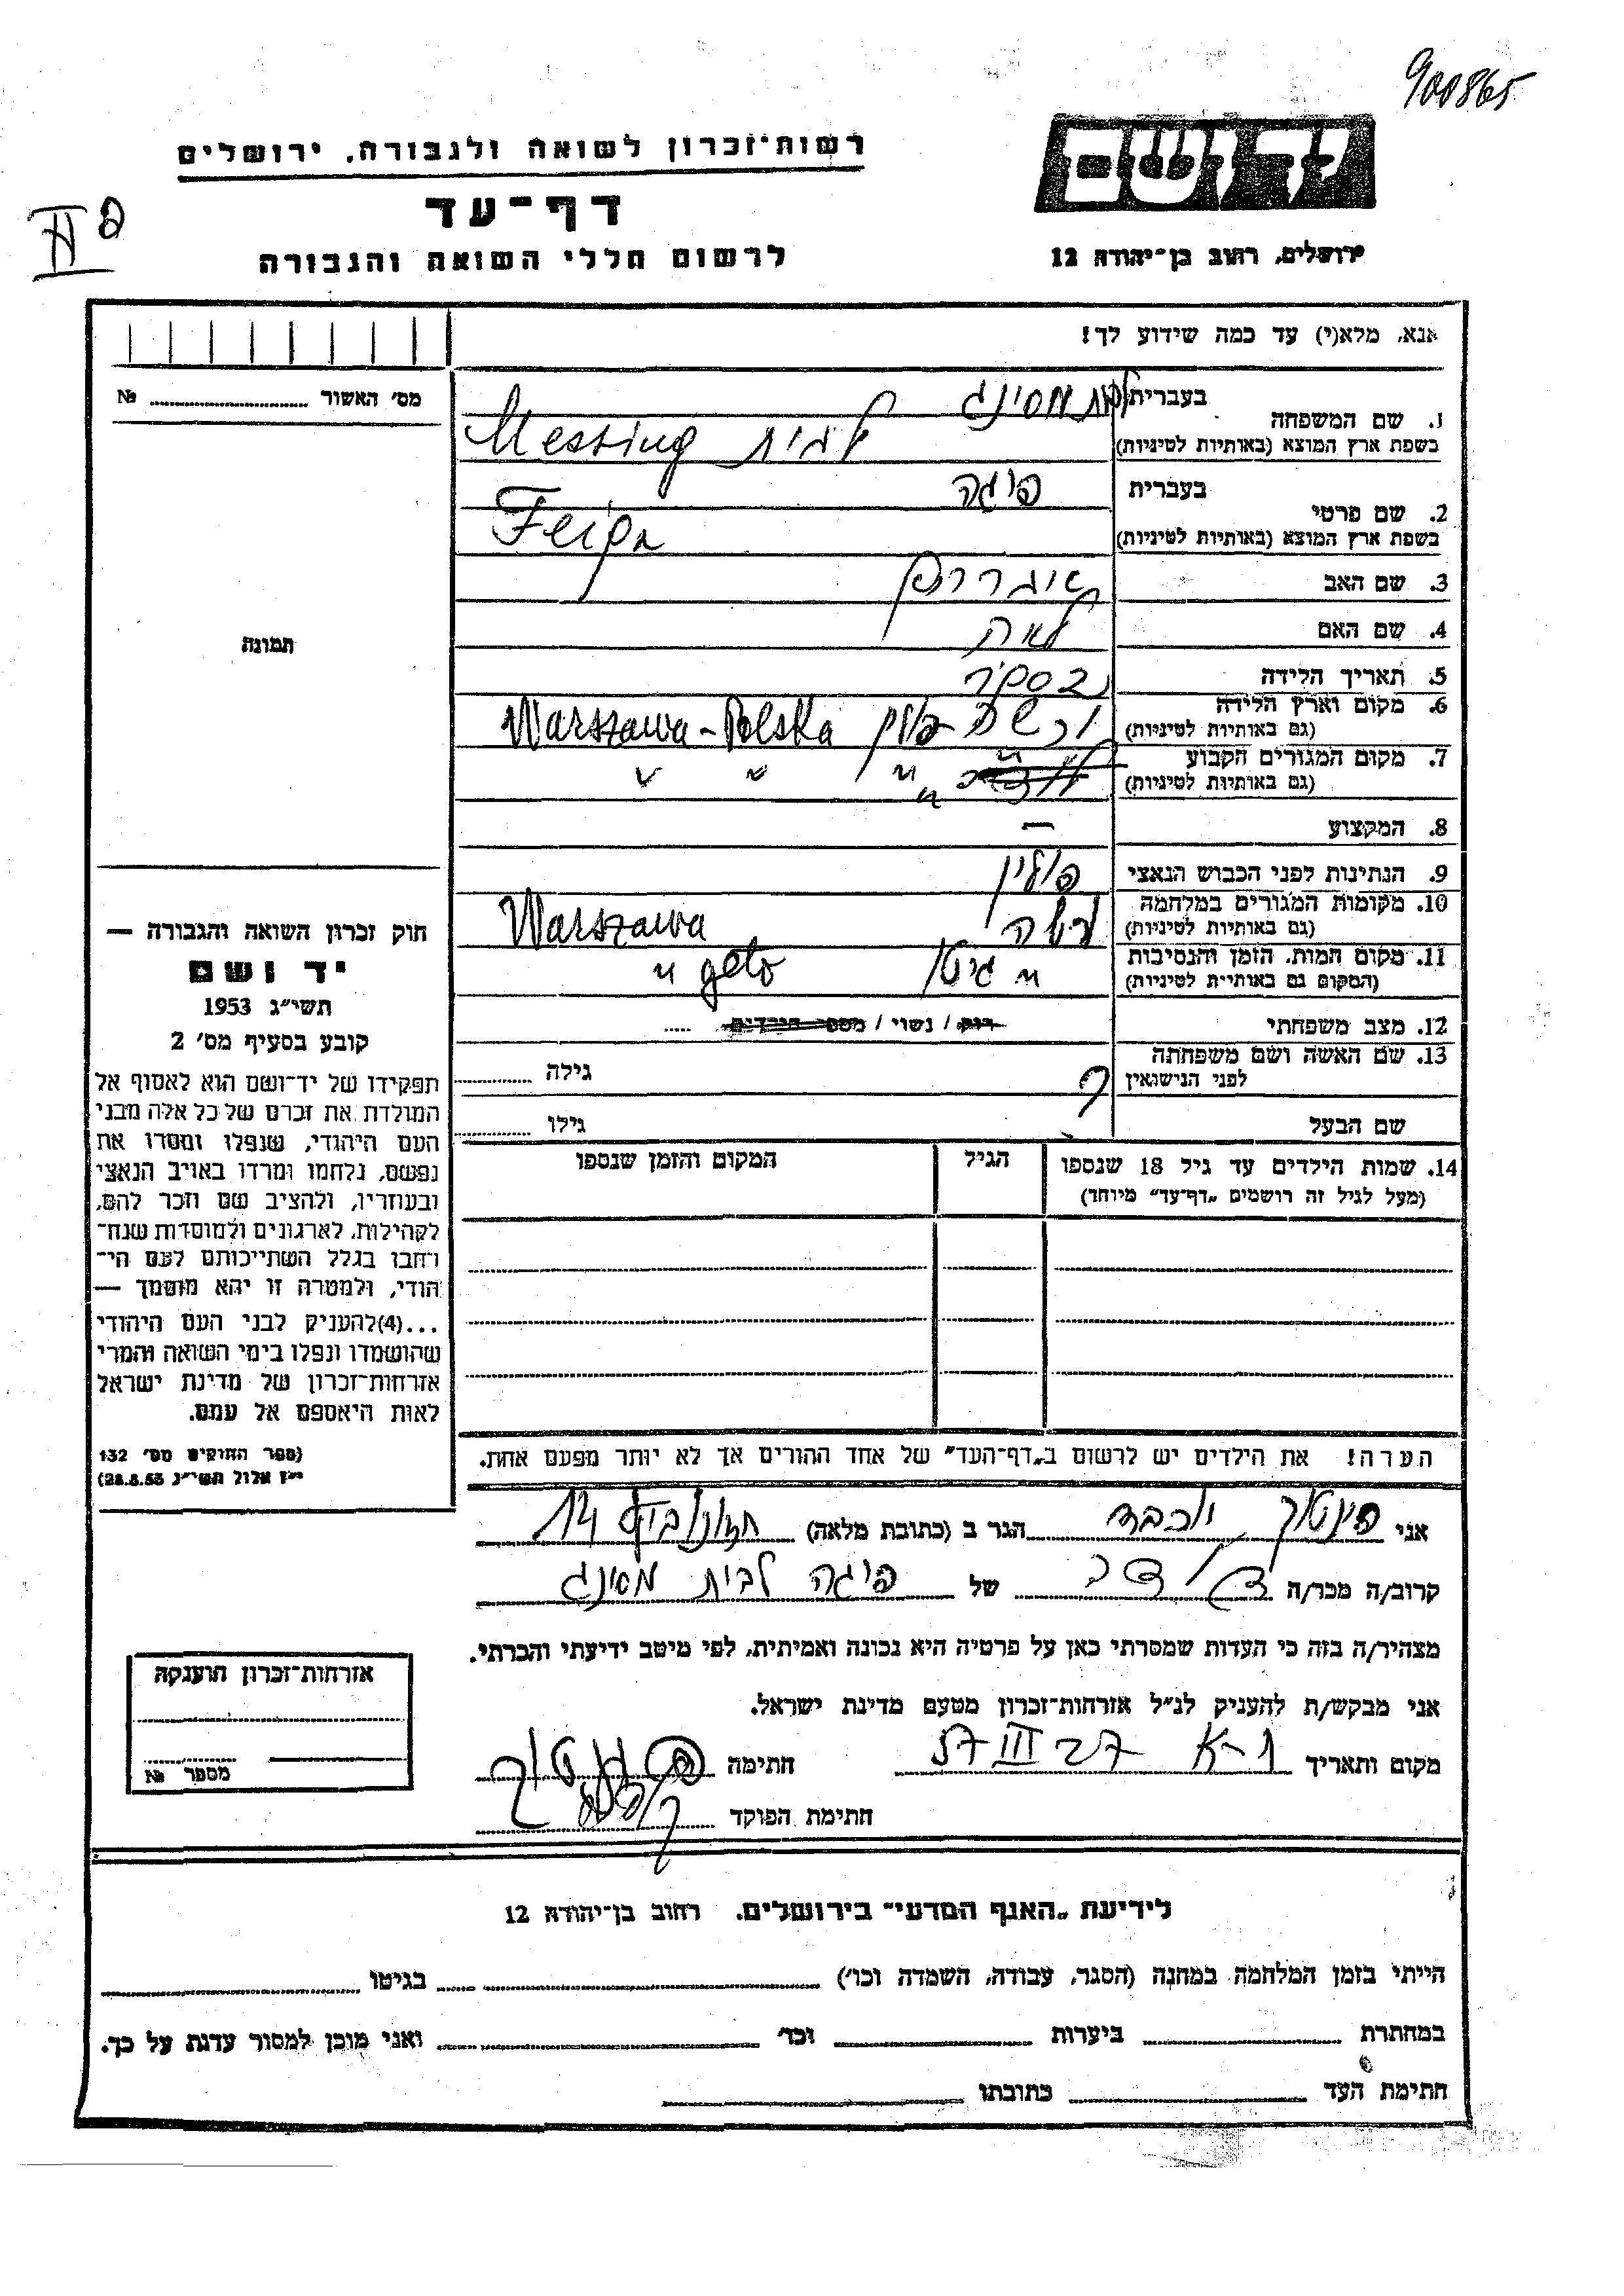 900865
יד ושם
רשות־זכרון לשואה ולגבורה, ירושלים
דף־עד
לרשום חללי השואה והגבורה
ירושלים, רחוב בן־יהודה 12
אנא, מלא(י) עד כמה שידוע לך!
מס׳ האשור № 
תמונה
1. שם המשפחה בעברית לבית מסינג
בשפת ארץ המוצא (באותיות לטיניות) לבית Messing
2. שם פרטי בעברית פיגה
בשפת ארץ המוצא (באותיות לטיניות) Feiga
3. שם האב
4. שם האם לאה
5. תאריך הלידה
6. מקום וארץ הלידה
(גם באותיות לטיניות) ורשה פולין Warszawa - Polska
7. מקום המגורים הקבוע
(גם באותיות לטיניות) " " " "
8. המקצוע —
9. הנתינות לפני הכבוש הנאצי פולין
10. מקומות המגורים במלחמה
(גם באותיות לטיניות) ורשה Warszawa
11. מקום המות, הזמן והנסיבות
(המקום גם באותיות לטיניות) " גיטו " geto
12. מצב משפחתי רוק / נשוי / מספר הילדים
13. שם האשה ושם משפחתה
לפני הנישואין ? גילה
שם הבעל גילו
14. שמות הילדים עד גיל 18 שנספו הגיל המקום והזמן שנספו
(מעל לגיל זה רושמים „דף־עד״ מיוחד)
הערה! את הילדים יש לרשום ב„דף־העד״ של אחד ההורים אך לא יותר מפעם אחת.
חוק זכרון השואה והגבורה —
יד ושם
תשי״ג 1953
קובע בסעיף מס׳ 2
תפקידו של יד־ושם הוא לאסוף אל
המולדת את זכרם של כל אלה מבני
העם היהודי, שנפלו ומסרו את
נפשם, נלחמו ומרדו באויב הנאצי
ובעוזריו, ולהציב שם וזכר להם,
לקהילות, לארגונים ולמוסדות שנח־
רבו בגלל השתייכותם לעם הי־
הודי, ולמטרה זו יהא מוסמך —
...(4)להעניק לבני העם היהודי
שהושמדו ונפלו בימי השואה והמרי
אזרחות־זכרון של מדינת ישראל
לאות היאספם אל עמם.
(ספר החוקים מס׳ 132
י״ז אלול תשי״ג 28.8.53)
אני יוכבד הגר ב (כתובת מלאה) 14
קרוב/ה מכר/ה של פיגה לבית מסינג
מצהיר/ה בזה כי העדות שמסרתי כאן על פרטיה היא נכונה ואמיתית, לפי מיטב ידיעתי והכרתי.
אני מבקש/ת להעניק לנ״ל אזרחות־זכרון מטעם מדינת ישראל.
מקום ותאריך 27 III 57 חתימה
חתימת הפוקד
אזרחות־זכרון הוענקה
מספר №
לידיעת „האגף המדעי״ בירושלים, רחוב בן־יהודה 12
הייתי בזמן המלחמה במחנה (הסגר, עבודה, השמדה וכו׳) בגיטו
במחתרת ביערות וכו׳ ואני מוכן למסור עדות על כך.
חתימת העד כתובתו